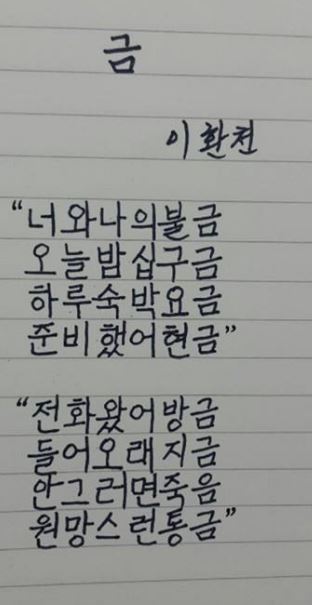 금
이환천
“너와나의불금
오늘밤십구금
하루숙박요금
준비했어현금”
“전화왔어방금
들어오래지금
안그러면죽음
원망스런통금”